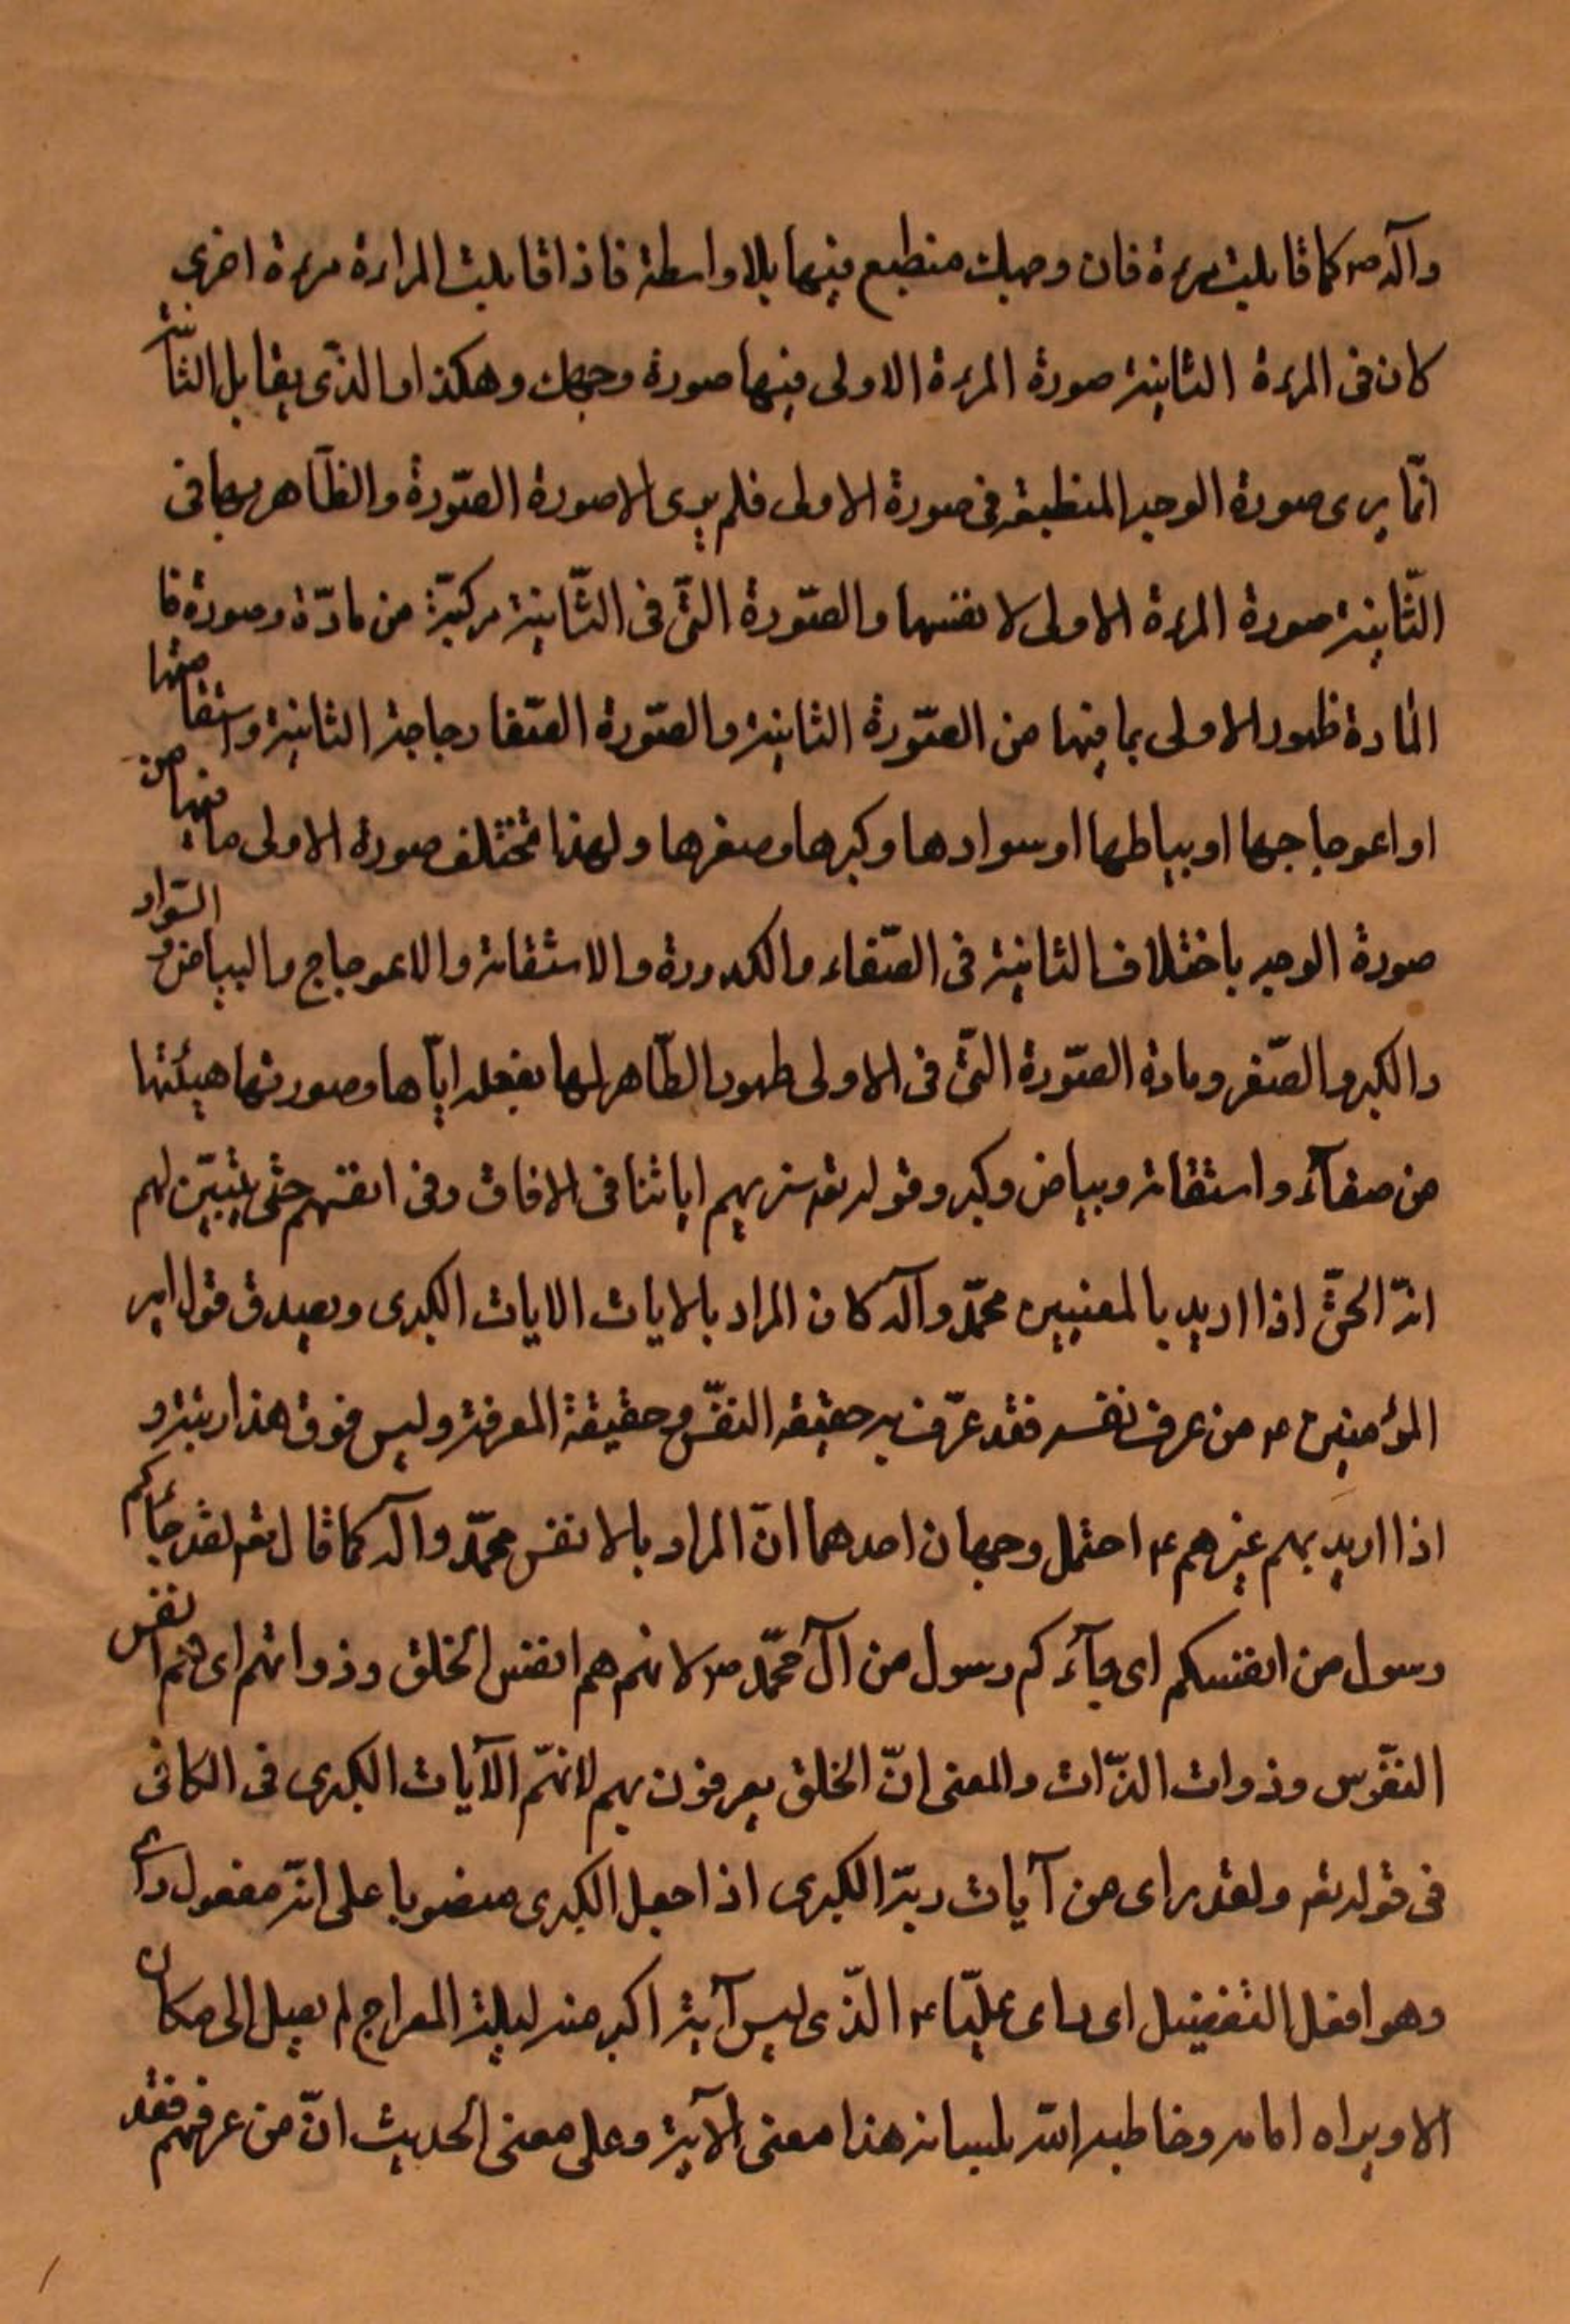 وآله ص كما قابلت مرءة فان وجهك منطبع فيها بلا واسطة فاذا قابلت المراءة مرءة اخرى
كان فى المرءة الثانية صورة المرءة الاولى فيها صورة وجهك وهكذا والذى يقابل الثانية
انما يرى صورة الوجه المنطبعة فى صورة الاولى فلم يرى الا صورة الصّورة والظّاهر بها فى
الثّانية صورة المرءة الاولى لا نفسها والصّورة التّى فى الثّانية مركبّة من مادّة وصورة فا
المادة ظهور الاولى بما فيها من الصّورة الثانية والصّورة الصّفا زجاجة الثانية واستقامتها
او اعوجاجها او بياضها او سوادها وكبرها وصغرها ولهذا تختلف صورة الاولى ما فيها من
صورة الوجه باختلاف الثانية فى الصّفاء والكدورة والاستقامة والاعوجاج والبياض والسّواد
والكبر والصّغر ومادة الصّورة التّى فى الاولى ظهور الظّاهر لها بفعله ايّاها وصورتها هيئتها
من صفآء واستقامة وبياض وكبر وقوله تعم سنريهم اياتنا فى الافاق وفى انفسهم حتّى يتبيّن لهم
انّه الحقّ اذا اريد بالمعنيين محمّد وآله كان المراد بالايات الايات الكبرى ويصدق قول امير
المؤمنين ع من عرف نفسه فقد عرّف به حقيقة النفّس وحقيقة المعرفة وليس فوق هذا رتبة و
اذا اريد بهم غيرهم ع احتمل وجهان احدهما انّ المراد بالانفس محمّد وآله كما قال تعم لقد جائكم
رسول من انفسكم اى جآءكم رسول من آل محمّد ص لانهم هم انفس الخلق وذواتهم اى هم انفس
النفّوس وذوات الذّات والمعنى انّ الخلق يعرفون بهم لانهّم الآيات الكبرى فى الكافى
فى قوله تعم ولقد راى من آيات ربّه الكبرى اذا جعل الكبرى منصوبا على انّه مفعول راى
وهو افعل التفضيل اى راى عليّا ع الذّى ليس آية اكبر منه ليلة المعراج لم يصل الى مكان
الا ويراه امامه وخاطبه الله بلسانه هذا معنى الآية وعلى معنى الحديث انّ من عرفهم فقد